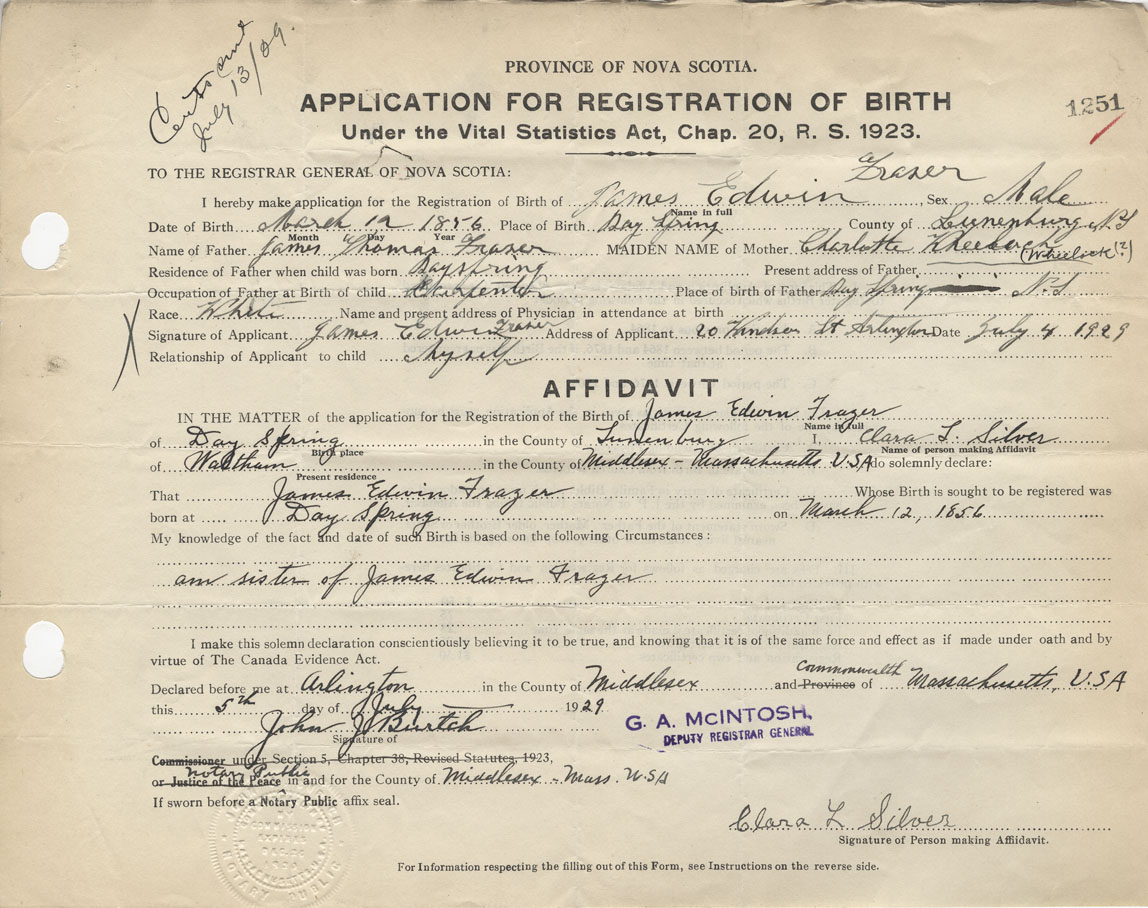 Cert sent
July 13/29.
PROVINCE OF NOVA SCOTIA.
APPLICATION FOR REGISTRATION OF BIRTH
1251
Under the Vital Statistics Act, Chap. 20, R. S. 1923.
TO THE REGISTRAR GENERAL OF NOVA SCOTIA:
I hereby make application for the Registration of Birth of James Edwin Frazer Sex Male
Name in full
Date of Birth March 12 1856 Place of Birth Day Spring County of Lunenburg N.S
Month Day Year
Name of Father James Thomas Frazer MAIDEN NAME of Mother Charlotte
(Wheelock (?)
Residence of Father when child was born Dayspring Present address of Father
Occupation of Father at Birth of child Carpenter Place of birth of Father Day Spring N.S
Race White Name and present address of Physician in attendance at birth
Signature of Applicant James Edwin Frazer Address of Applicant 20 Windsor St Arlington Date July 4 1929
Relationship of Applicant to child Myself
AFFIDAVIT
IN THE MATTER of the application for the Registration of the Birth of James Edwin Frazer
Name in full
of Day Spring in the County of Lunenburg I, Clara L. Silver
Birth place Name of person making Affidavit
of Waltham in the County of Middlesex - Massachusetts U.S.A do solemnly declare:
Present residence
That James Edwin Frazer Whose Birth is sought to be registered was
born at Day Spring on March 12, 1856
My knowledge of the fact and date of such Birth is based on the following Circumstances :
am sister of James Edwin Frazer
I make this solemn declaration conscientiously believing it to be true, and knowing that it is of the same force and effect as if made under oath and by
virtue of The Canada Evidence Act.
Commonwealth
Declared before me at Arlington in the County of Middlesex and Province of Massachusetts, U.S.A
this 5th day of July 1929
John J Burtch
Signature of
G. A. McINTOSH,
DEPUTY REGISTRAR GENERAL
Commissioner under Section 5, Chapter 38, Revised Statutes, 1923,
Notary Public
or Justice of the Peace in and for the County of Middlesex - Mass. U.S.A
If sworn before a Notary Public affix seal.
Clara L Silver
Signature of Person making Affiidavit.
For Information respecting the filling out of this Form, see Instructions on the reverse side.